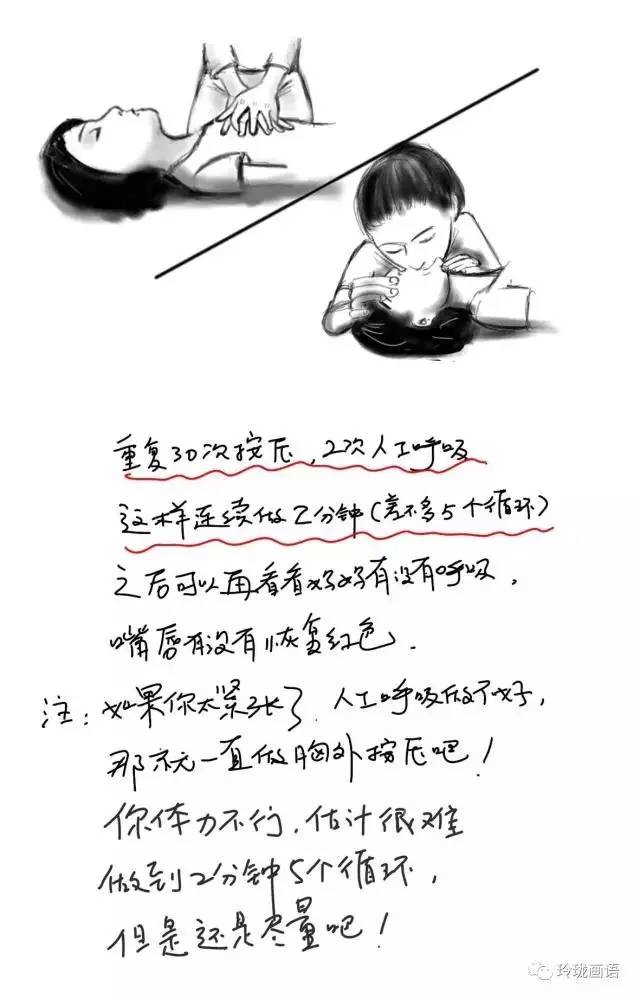 重复30次按压，2次人工呼吸
这样连续做2分钟(差不多5个循环)
之后可以再看看妈妈有没有呼吸，
嘴唇有没有恢复红色.
注：如果你太紧张了.人工呼吸做不好，
那就一直做胸外按压吧！
你体力不行，估计很难
做到2分钟5个循环，
但是还是尽量吧！
玲珑画语